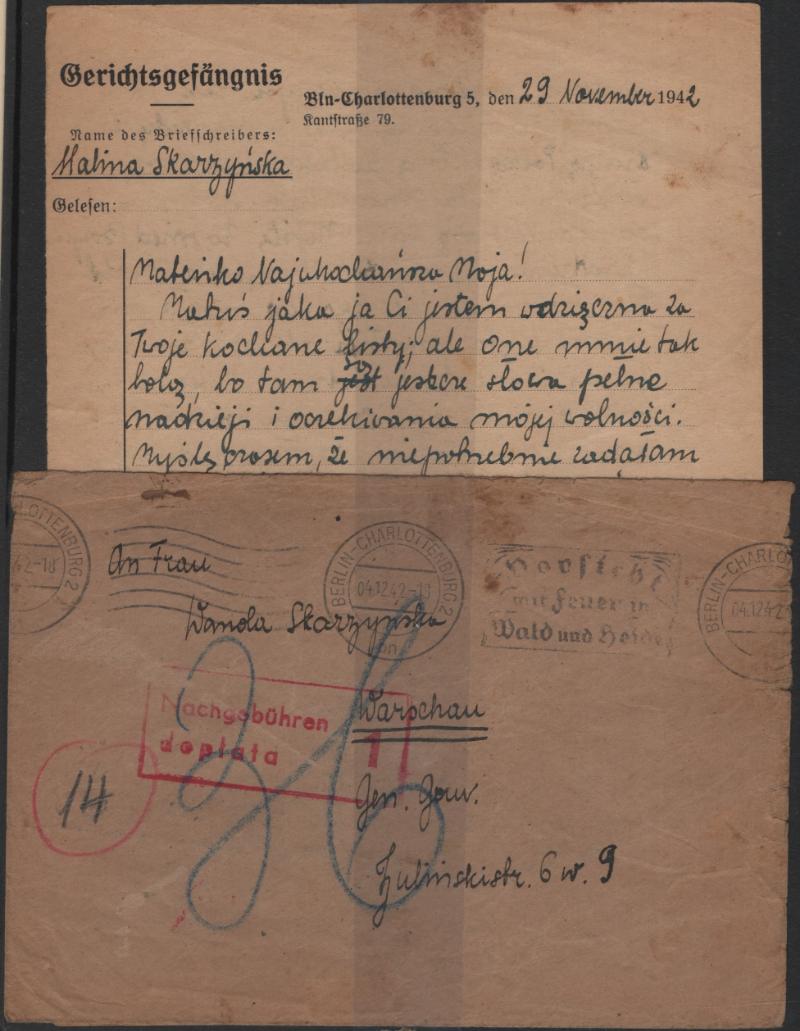 Gerichtsgefängnis
Bln-Charlottenburg 5, den 29 November 1942
Kantstraße 79.
Name des Briefschreibers:
Halina Skarzyńska
Gelesen:
Mateńko Najukochańsza Moja!
Matuś jaka ja Ci jestem wdzięczna za
Twoje kochane listy; ale one mnie tak
bolą, bo tam są jeszcze słowa pełne
nadzieji i oczekiwania mojej wolności.
Myślę czasem, że niepotrzebnie zadałam
CHARLOTTENBURG 2
42-18
An Frau
BERLIN-CHARLOTTENBURG 2
04.12.42-18
Vorsicht
mit Feuer in
Wald und Heide
BERLIN-CHARLO
04.12.42
Wanda Skarzynska
Nachgebühren
dopłata
1
Warschau
14
Gen. Gouv.
Zulinskistr. 6 w. 9